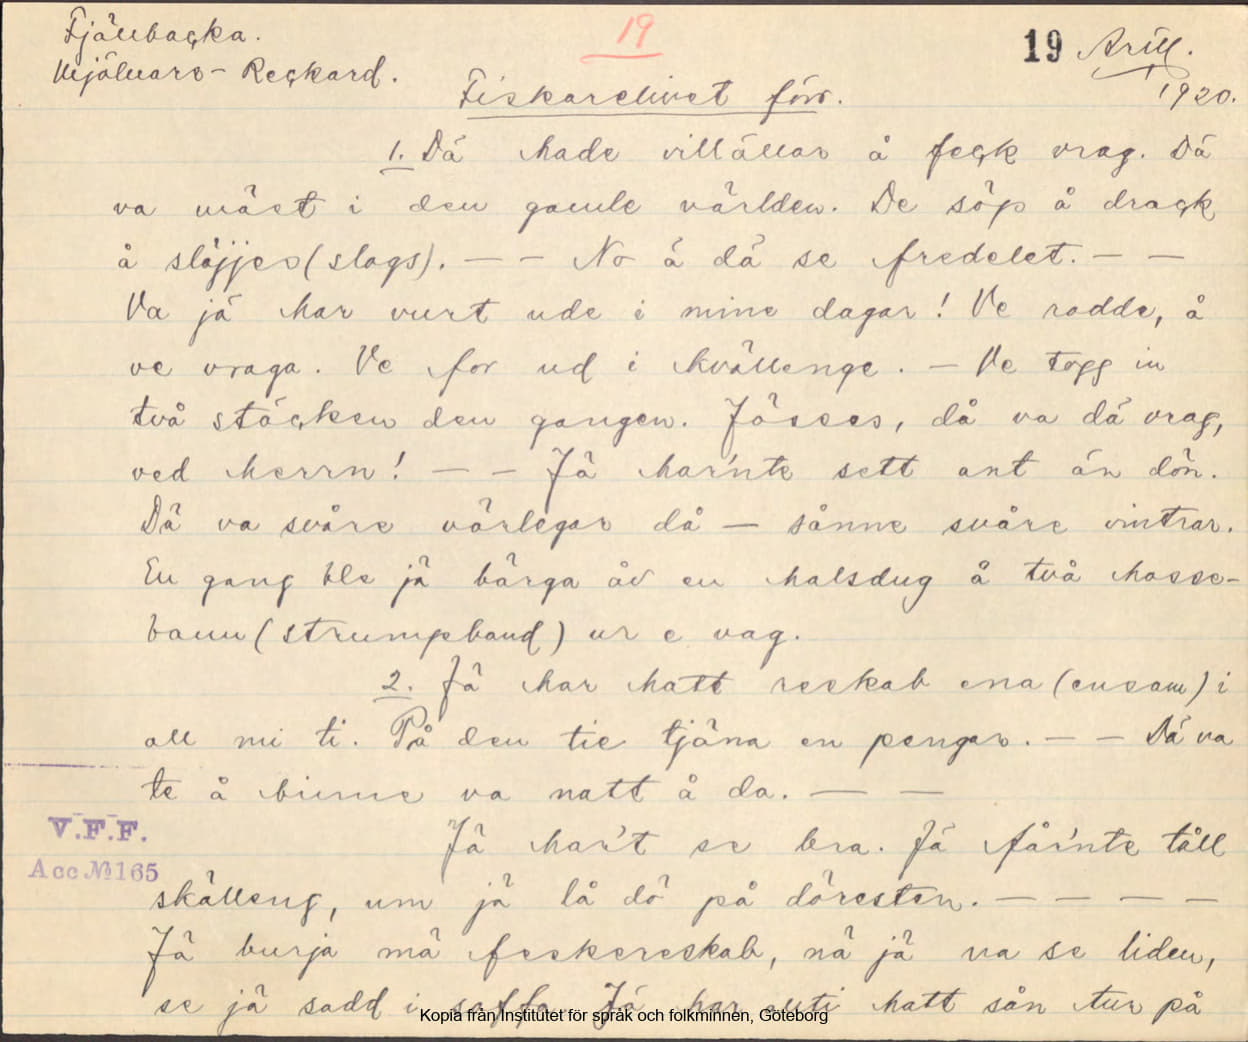 Fjällbacka.
19
19 Arill.
Mjölnare-Reckard.
1920.
Fiskarelivet förr.
1. Dä hade villällar å feck vrag. Dä
va mäst i den gamle världen. De söp å drack
å släjjes (slogs). — — No ä dä se fredelet. — —
Va jä har vurt ude i mine dagar! Ve rodde, å
ve vraga. Ve for ud i kvällenge. — Ve togg in
två stöcken den gangen. Jösses, då va dä vrag,
ved herrn! — — Jä har'nte sett ant än dön.
Dä va svåre värlegar då — sånne svåre vintrar.
En gang ble jä bärga åv en halsdug å två hosse-
bann (strumpeband) ur e vag.
2. Jä har hatt reskab ena (ensam) i
all mi ti. På den tie tjäna en pengar. — — Dä va
te å binne va natt å da. — —
Jä har't se bra. Jä får'nte tåll
skälleng, um jä lå dö på döresten. — — — —
Jä burja mä feskereskab, nä jä va se liden,
se jä sadd i soffa. Jä har outi hatt sån tur på
V.F.F.
Acc № 165
Kopia från Institutet för språk och folkminnen, Göteborg